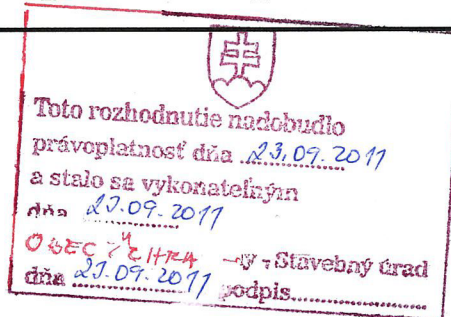 Toto rozhodnutie nadobudlo
právoplatnosť dňa 23.09.2011
a stalo sa vykonateľným
dňa 23.09.2011
OBEC - Stavebný úrad
dňa 23.09.2011 podpis